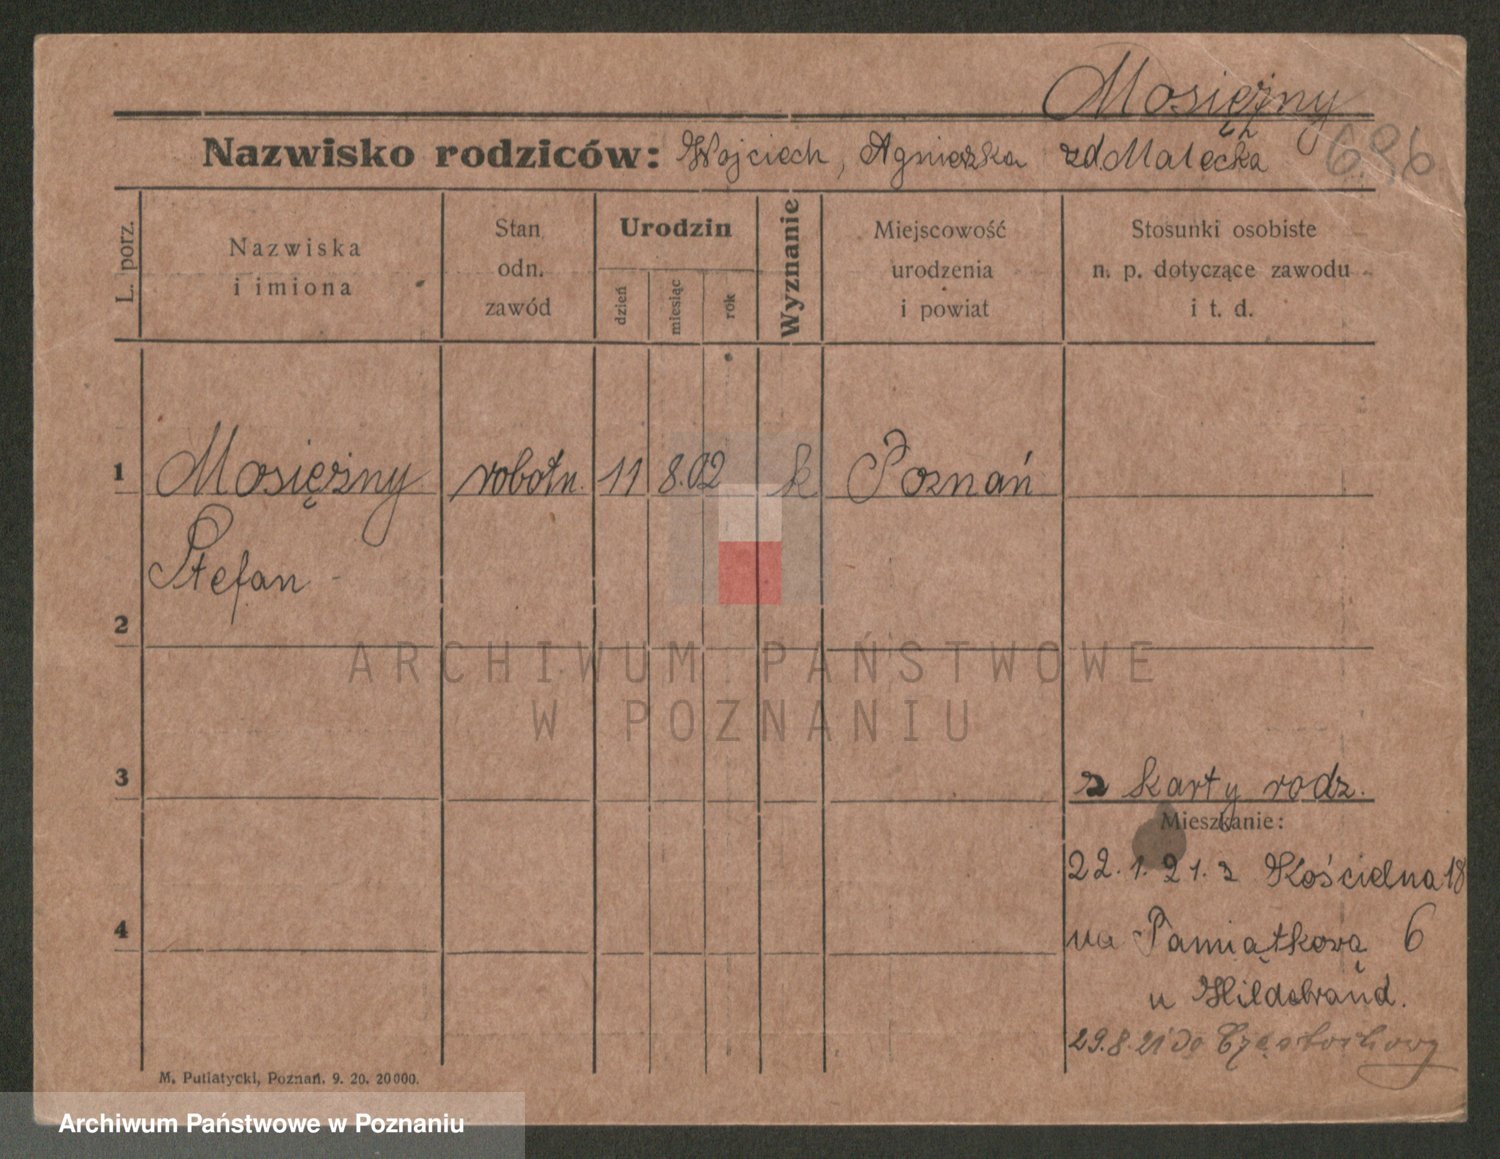 Mosiężny
Nazwisko rodziców: Wojciech, Agnieszka zd. Małecka 686
L. porz.
Nazwiska
i imiona
Stan
odn.
zawód
Urodzin
dzień
miesiąc
rok
Wyznanie
Miejscowość
urodzenia
i powiat
Stosunki osobiste
n. p. dotyczące zawodu
i t. d.
1 Mosiężny robotn. 11 8.02 k Poznań
Stefan
2
ARCHIWUM PAŃSTWOWE
W POZNANIU
3
z karty rodz.
Mieszkanie:
22.1.21. z Kościelna 18
4
na Pamiątkową 6
u Hildebrand.
29.8.21 do Częstochowy
M. Putiatycki, Poznań. 9. 20. 20000.
Archiwum Państwowe w Poznaniu